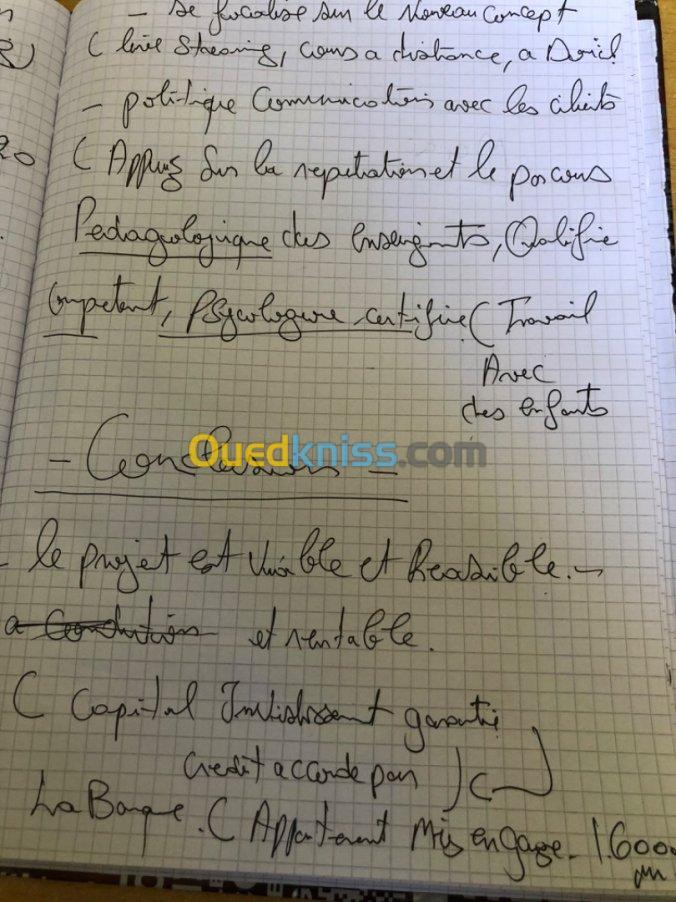 - se focalise sur le Nouveau Concept
( live Streaming, cours a distance, a Domicil
- politique Communication avec les clients
20
( Appuy Sur la reputation et le parcours
Pedagologique des enseignants, Qualifie
Competent, Psycologue certifie ( Travail
Avec
des enfants
- Conclusion -
Ouedkniss.com
- le projet est viable et Reasible. -
a Condition et rentable.
( Capital Invistissement garantie
credit accorde par
La Banque. ( Appartement Mis en gage - 1.600